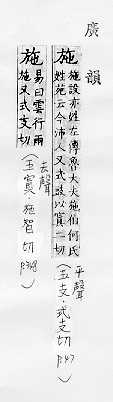 廣韻
施 施設亦姓左傳魯大夫施伯何氏
姓苑云今沛人又式豉以寘二切
平聲
(五支·式支切 p.47)
施 易曰雲行雨
施又式支切
去聲
(五寘·施智切 p.348)